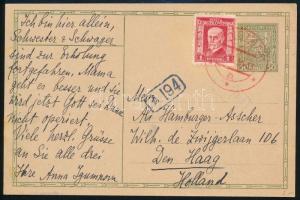 Ich bin hier allein,
Schwester & Schwager
sind zur Erholung
fortgefahren, Mama
geht es besser und sie
wird jetzt Gott sei Dank
nicht operiert.
Viele herzl. Grüsse
an Sie alle drei
Ihre Anna
194
Hamburger-Asscher
Wilh. de Zwijgerlaan 106
Den Haag
Holland